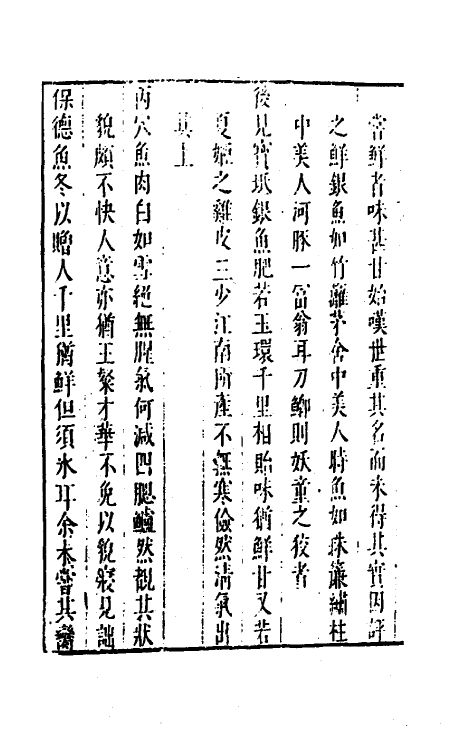 嘗鮮者味甚甘始嘆世重其名而未得其實因評
之鮮銀魚如竹籬茅舍中美人時魚如珠簾繡柱
中美人河豚一富翁耳刀鱭則妖童之狡者
後見寶坻銀魚肥若玉環千里相貽味猶鮮甘又若
夏姬之雞皮三少江南所產不無寒儉然清氣出
其上
丙穴魚肉白如雪絕無腥氣何減四腮鱸然觀其狀
貌頗不快人意亦猶王粲才華不免以貌寢見詘
保德魚冬以贈人千里猶鮮但須氷耳余未嘗其臠